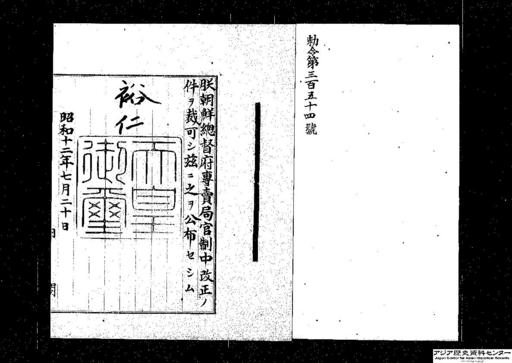 勅令第三百五十四號
朕朝鮮總督府專賣局官制中改正ノ
件ヲ裁可シ玆ニ之ヲ公布セシム
裕仁
天皇御璽
昭和十二年七月二十日
アジア歴史資料センター
Japan Center for Asian Historical Records